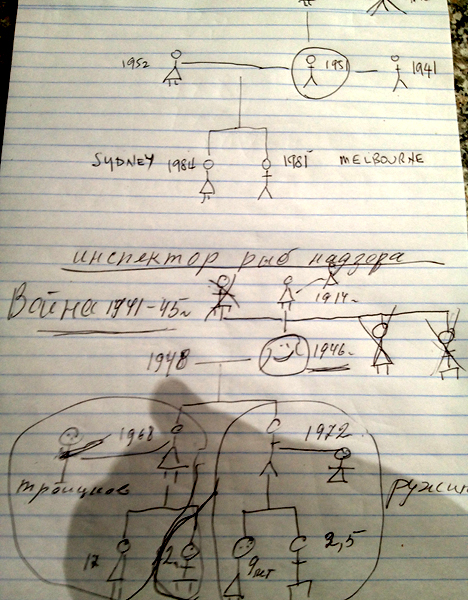 1952 1951 1941
SYDNEY 1984 1981 MELBOURNE
инспектор рыб надзора
Война 1941-45г 1914г
1948 1946г
1968 1972
2,5